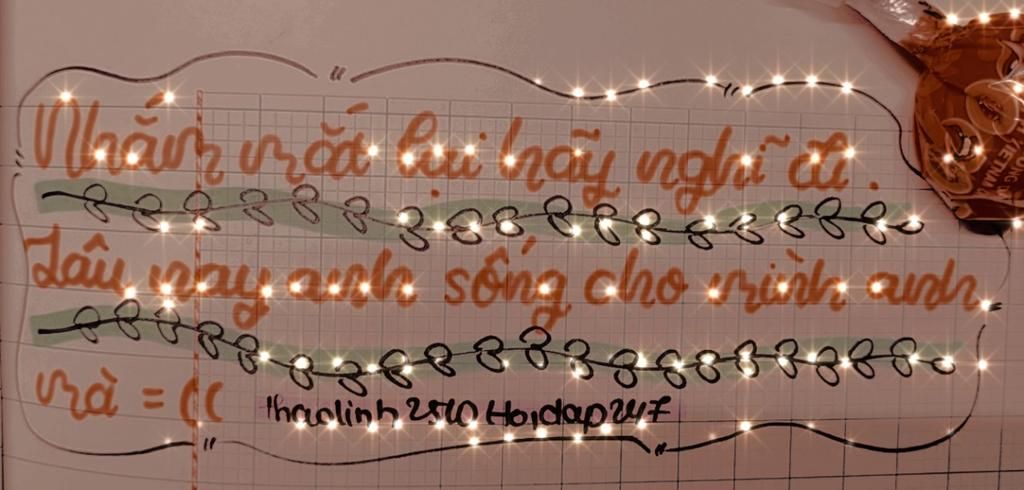 Nhắm mắt lại hãy nghĩ đi .
Lâu nay anh sống cho mình anh
mà = ((
thaolinh2510 Hoidap247